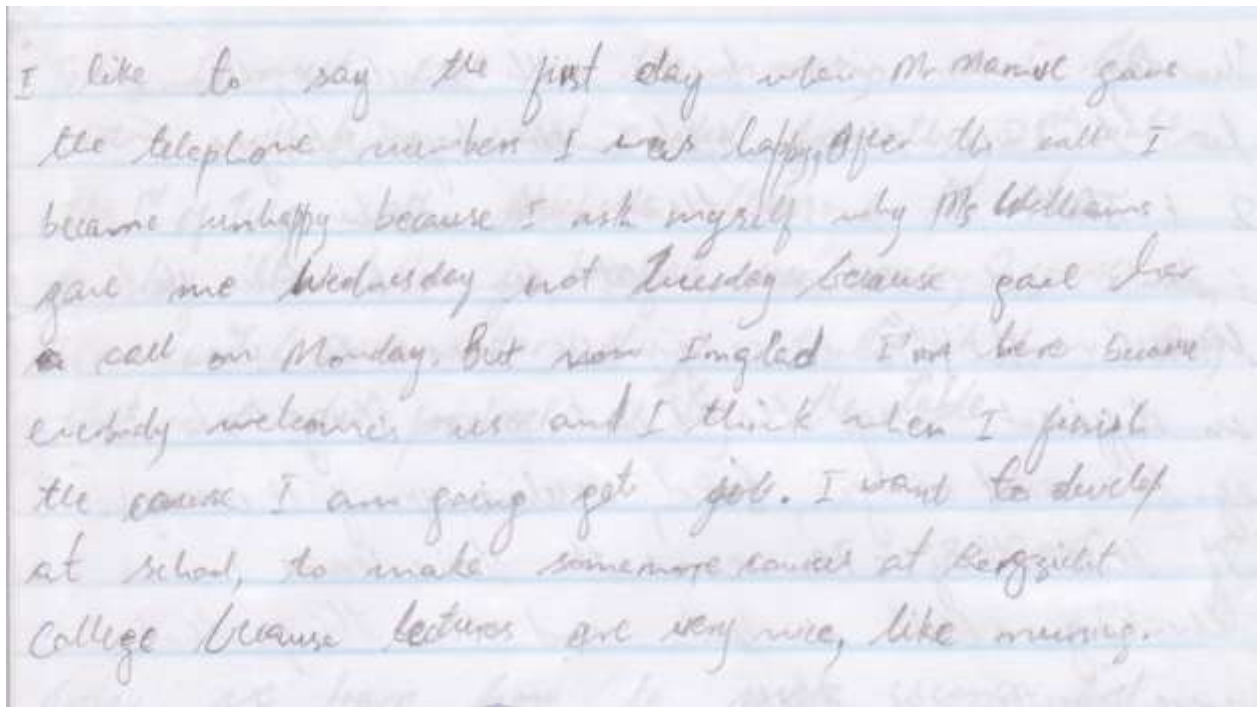 I like to say the first day when Mr Manuel gave
the telephone numbers I was happy, After the call I
became unhappy because I ask myself why Ms Williams
gave me Wednesday not Tuesday because gave her
call on Monday. But now I'm glad I'm here because
everbody welcome us and I think when I finish
the course I am going get job. I want to develop
at school, to make somemore cources at
College because lectures are very nice, like nursing.